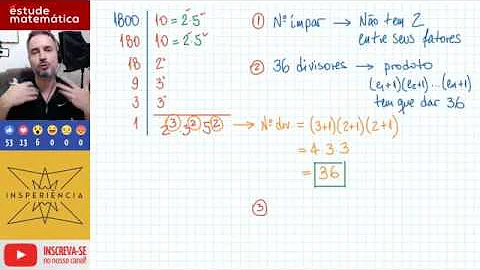 éstude
matemática
53 13 6 0 0 0
INSPERIÊNCIA
INSCREVA-SE
no nosso canal!
1800 | 10 = 2·5
180 | 10 = 2·5
18 | 2
9 | 3
3 | 3
1 | 2³ 3² 5² → Nº div. = (3+1)(2+1)(2+1)
= 4 3 3
= 36
1 Nº ímpar → Não tem 2
entre seus fatores
2 36 divisores → produto
(e₁+1)(e₂+1)...(eₙ+1)
tem que dar 36
3